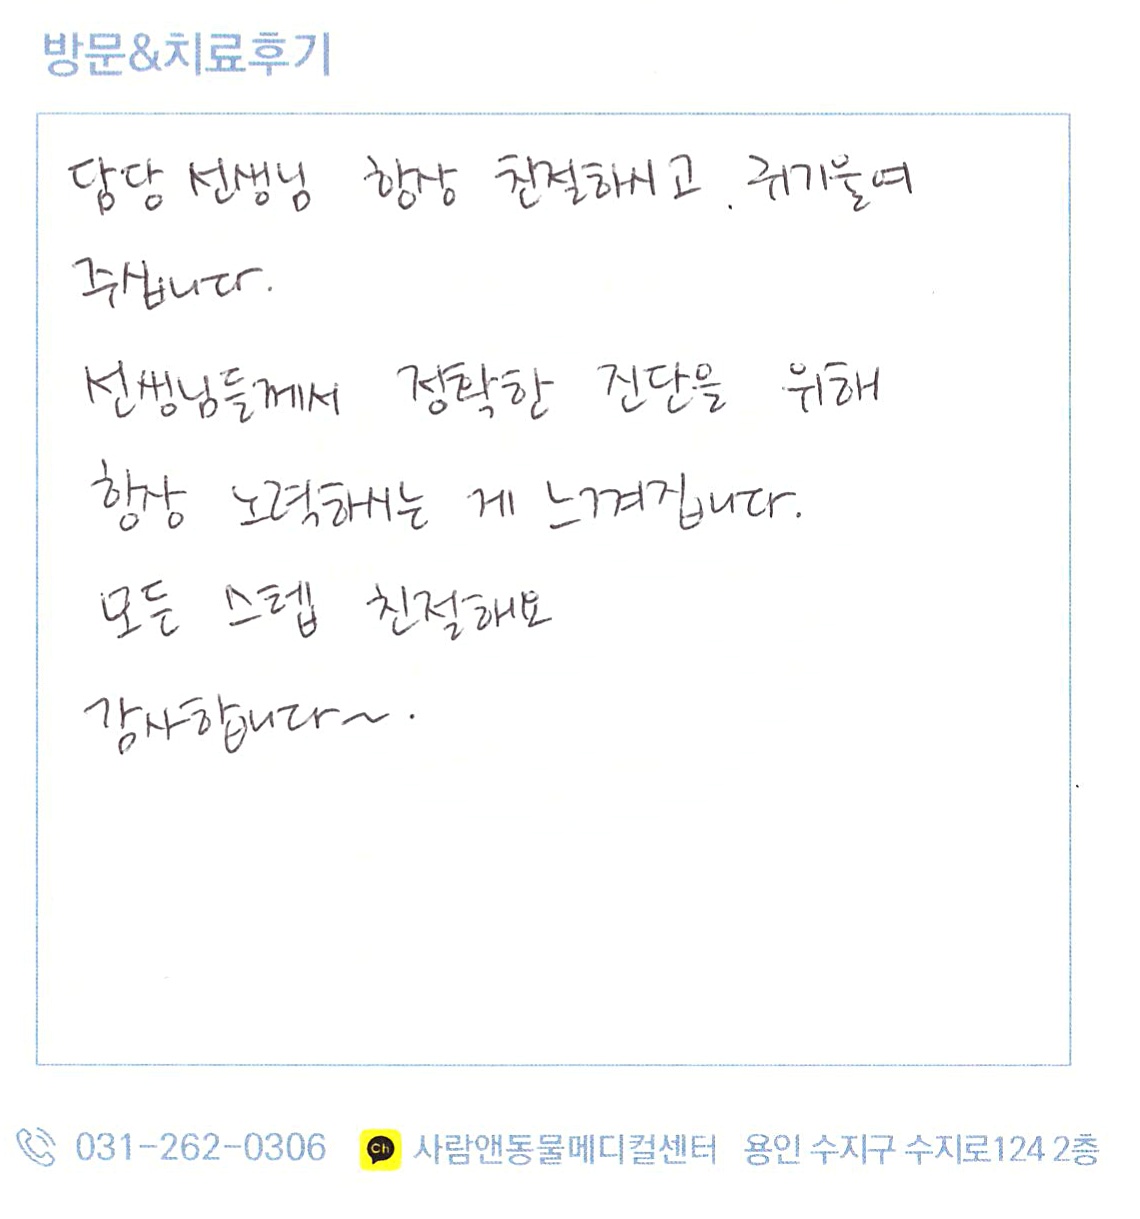 방문&치료후기
담당 선생님 항상 친절하시고. 귀기울여
주십니다.
선생님들께서 정확한 진단을 위해
항상 노력하시는 게 느껴집니다.
모든 스텝 친절해요
감사합니다~.
031-262-0306 Ch 사람앤동물메디컬센터 용인 수지구 수지로124 2층